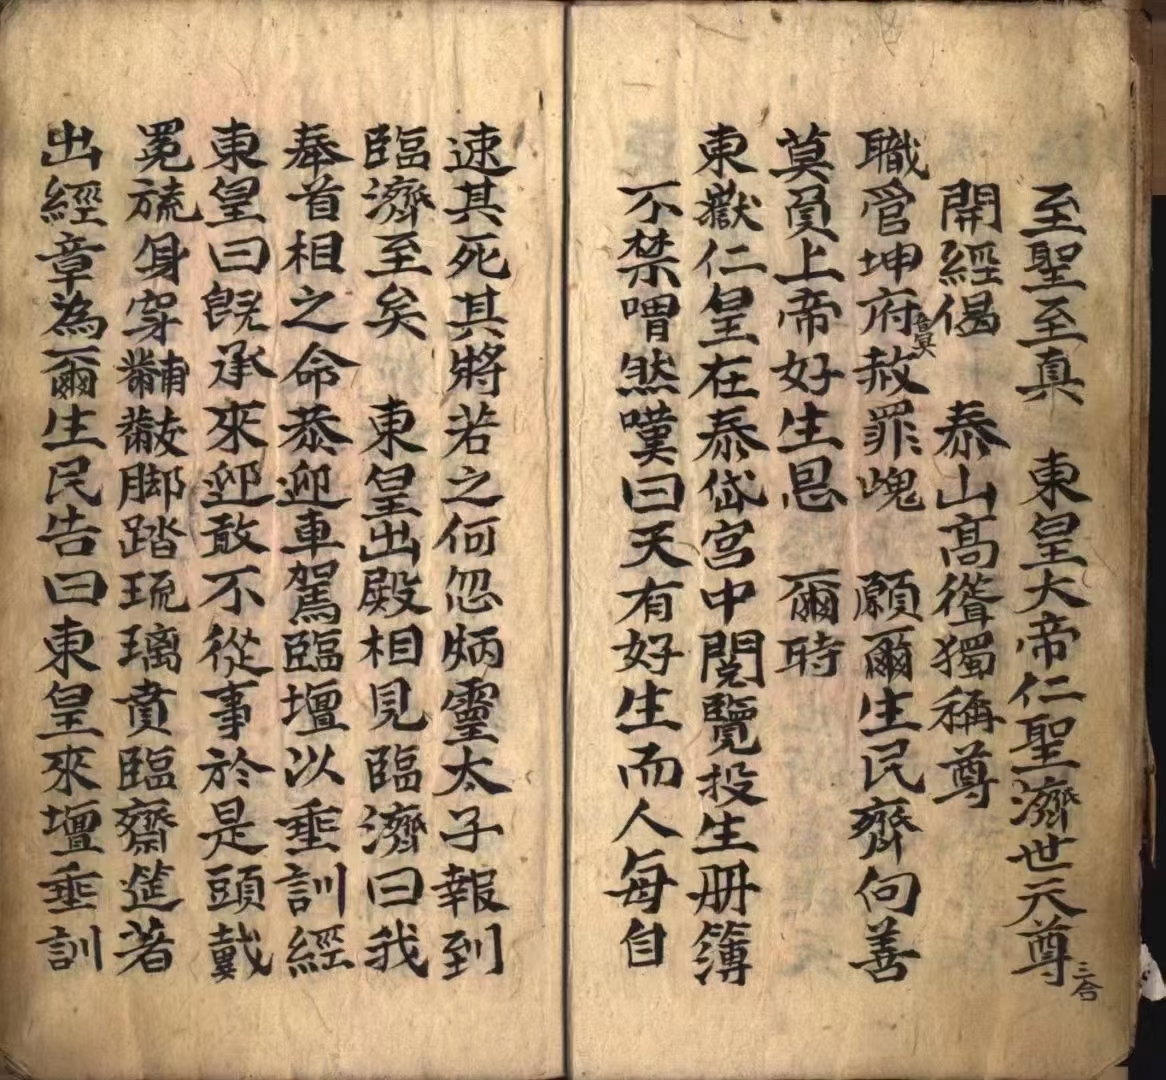 至聖至真　東皇大帝仁聖濟世天尊三合
開經偈　泰山高聳獨稱尊
職管坤府赦罪魂　願爾生民齊向善
莫負上帝好生恩　爾時
東嶽仁皇在泰岱宮中閱覽投生冊簿
不禁喟然嘆曰天有好生而人每自
速其死其將若之何忽炳靈太子報到
臨濟至矣　東皇出殿相見臨濟曰我
奉首相之命恭迎車駕臨壇以垂訓經
東皇曰既承來迎敢不從事於是頭戴
冕旒身穿黼黻脚踏琉璃賁臨齋筵著
出經章為爾生民告曰東皇來壇垂訓